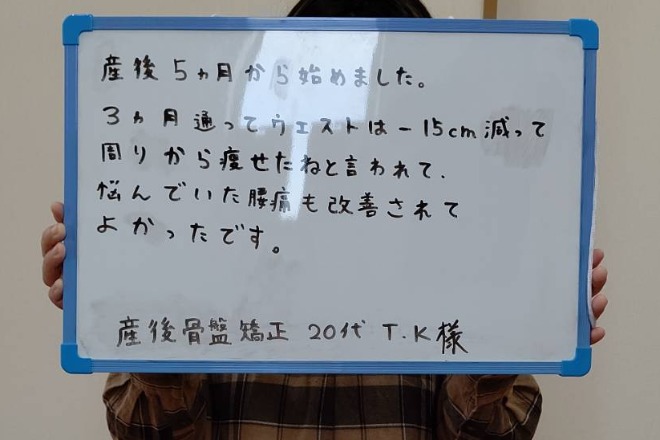 産後5ヵ月から始めました。
3ヵ月通ってウエストは-15cm減って
周りから痩せたねと言われて、
悩んでいた腰痛も改善されて
よかったです。
産後骨盤矯正 20代 T.K様